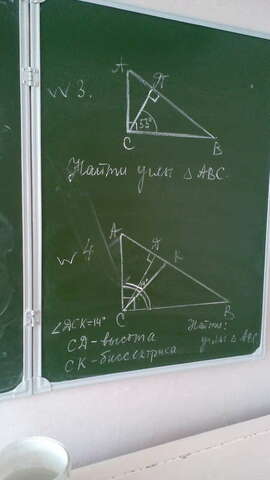 № 3.
A
Д
53°
C
B
Найти углы △ ABC.
№ 4
A
Д
K
C
B
∠ДCK=14°
CД - высота
CK - биссектриса
Найти:
углы △ ABC